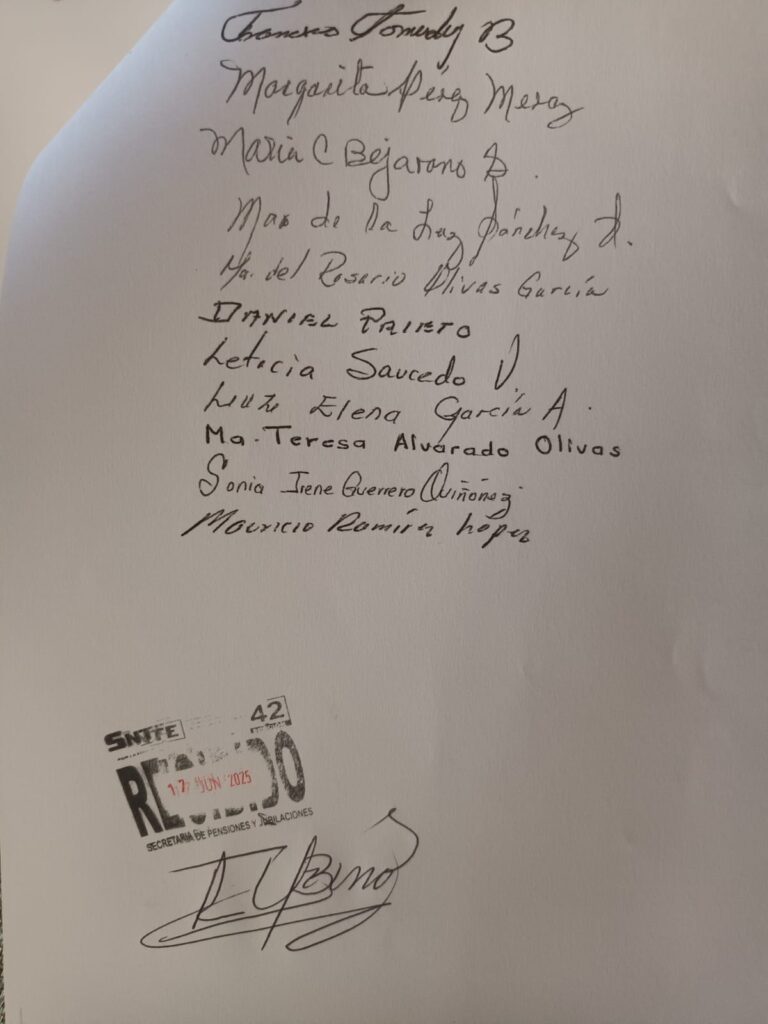 Francisco B
Margarita Pérez Meraz
Maria C Bejarano B.
Mar de la Luz Sánchez R.
Ma. del Rosario Olivas García
DANIEL PRIETO
Leticia Saucedo V.
Luz Elena García A.
Ma. Teresa Alvarado Olivas
Sonia Irene Guerrero Quiñónez
Mauricio Ramírez López
SNTE 42
RECIBIDO
17 JUN 2025
SECRETARIA DE PENSIONES Y JUBILACIONES